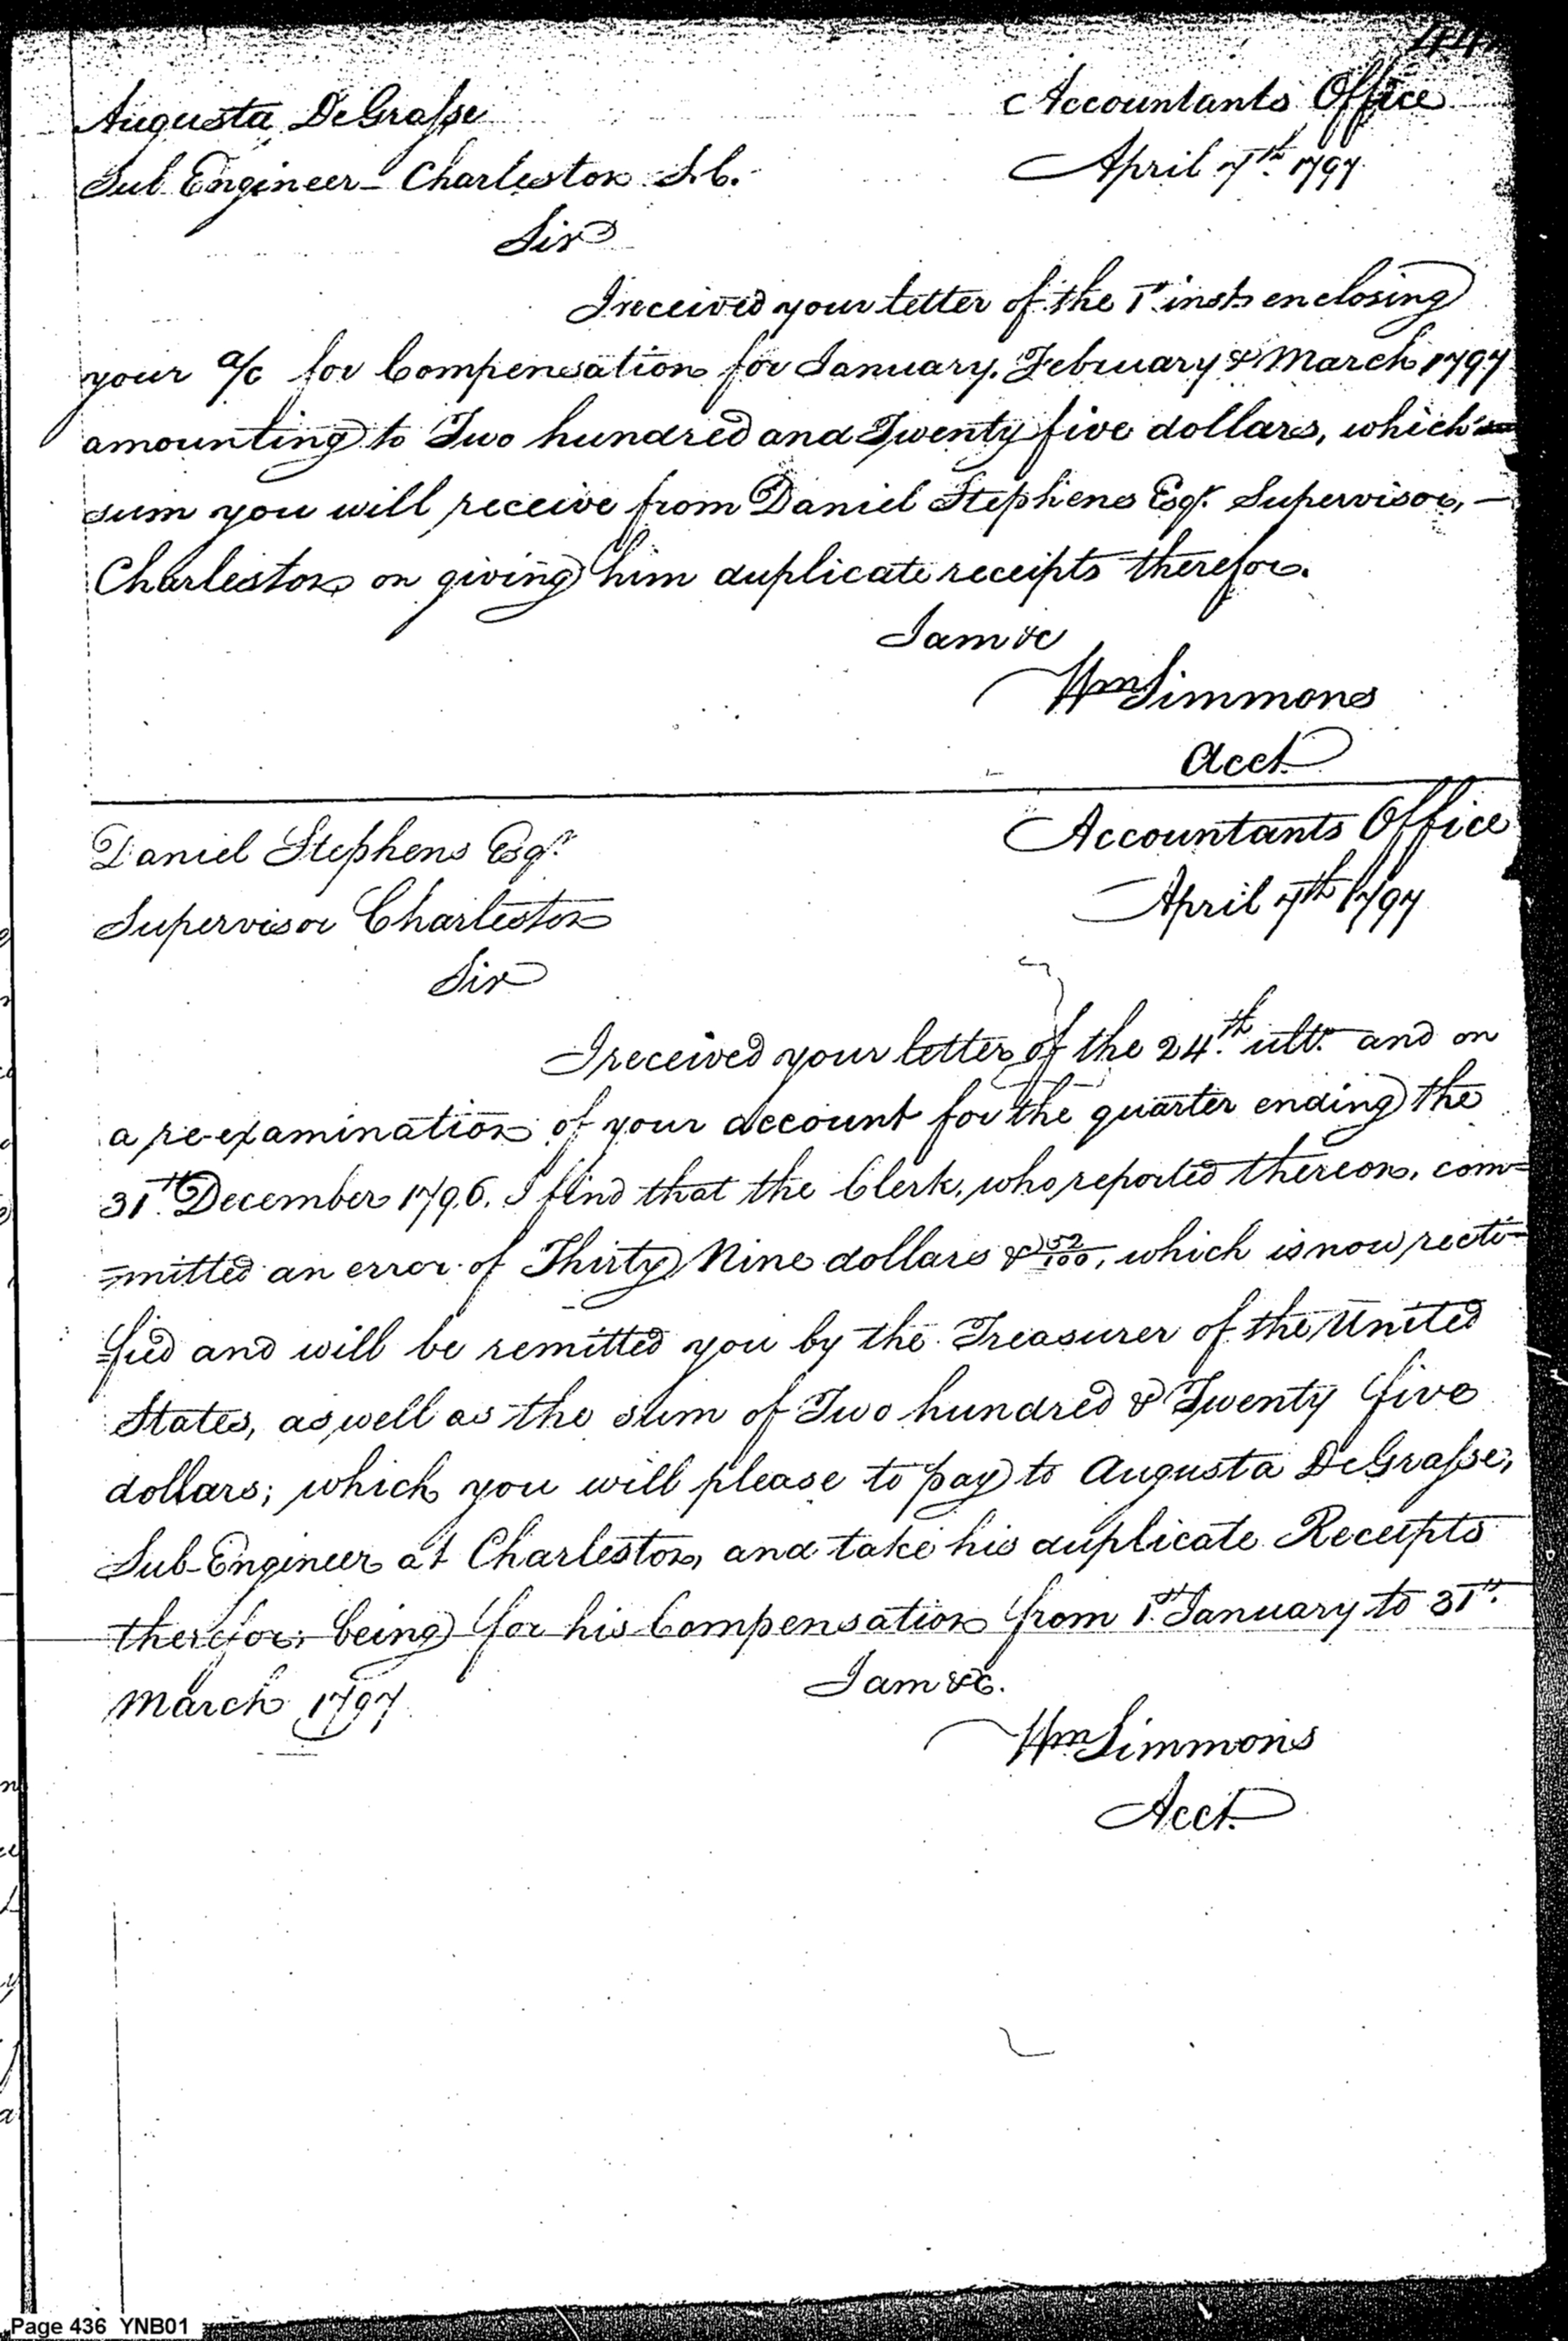 Augusta DeGrasse
Accountants Office
Sub Engineer - Charleston S.C.
April 7th. 1797
Sir
I received your letter of the 1st inst. enclosing
your a/c for Compensation for January, February & March 1797
amounting to Two hundred and Twenty five dollars, which
sum you will receive from Daniel Stephens Esqr. Supervisor, —
Charleston on giving him duplicate receipts therefor.
I am &c
Wm Simmons
Acct.
Daniel Stephens Esqr.
Accountants Office
Supervisor Charleston
April 7th 1797
Sir
I received your letter of the 24th. ulto. and on
a re-examination of your account for the quarter ending the
31st. December 1796. I find that the Clerk, who reported thereon, com=
=mitted an error of Thirty Nine dollars & 52/100, which is now recti=
=fied and will be remitted you by the Treasurer of the United
States, as well as the sum of Two hundred & Twenty five
dollars; which you will please to pay to Augusta DeGrasse,
Sub-Engineer at Charleston, and take his duplicate Receipts
therefor; being for his Compensation from 1st. January to 31st.
March 1797.
I am &c.
Wm Simmons
Acct.
Page 436 YNB01